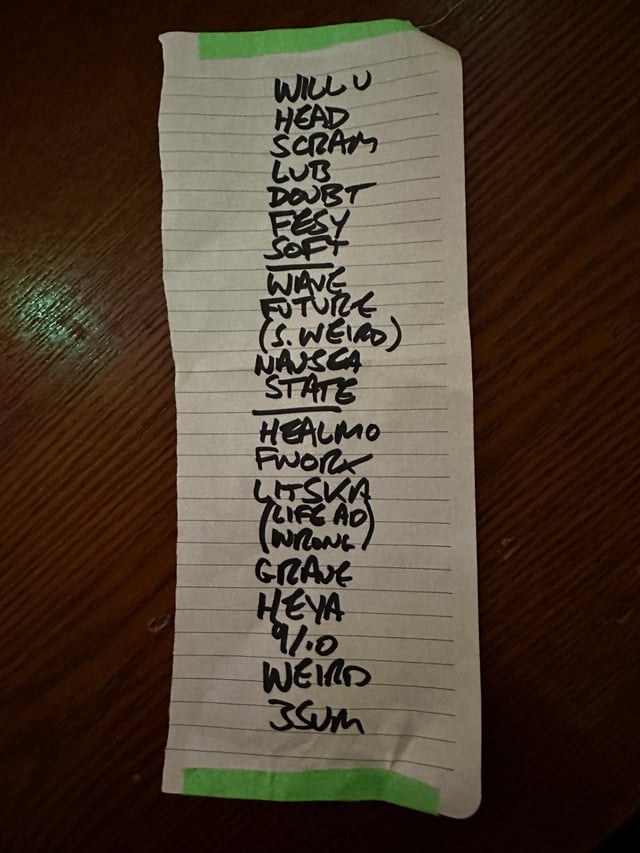 WILL U
HEAD
SCRAM
LUB
DOUBT
FESY
SOFT
WAVE
FUTURE
(S. WEIRD)
NAUSEA
STATE
HEALMO
FWORX
LITSKA
(LIFE AD)
(WRONG)
GRAVE
HEYA
9/10
WEIRD
3SUM